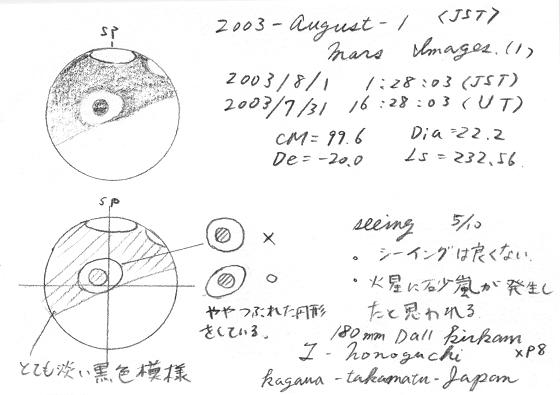 2003 - August - 1 〈JST〉
Mars Images. (1)
2003/8/1 1:28:03 (JST)
2003/7/31 16:28:03 (UT)
CM = 99.6 Dia = 22.2
De = -20.0 Ls = 232.56
sp
sp
×
○
ややつぶれた円形
をしている。
とても淡い黒色模様
seeing 5/10
・シーイングは良くない。
・火星に砂嵐が発生し
たと思われる
180mm Dall kirkam
I - honoguchi ×P8
kagawa - takamatu - Japan